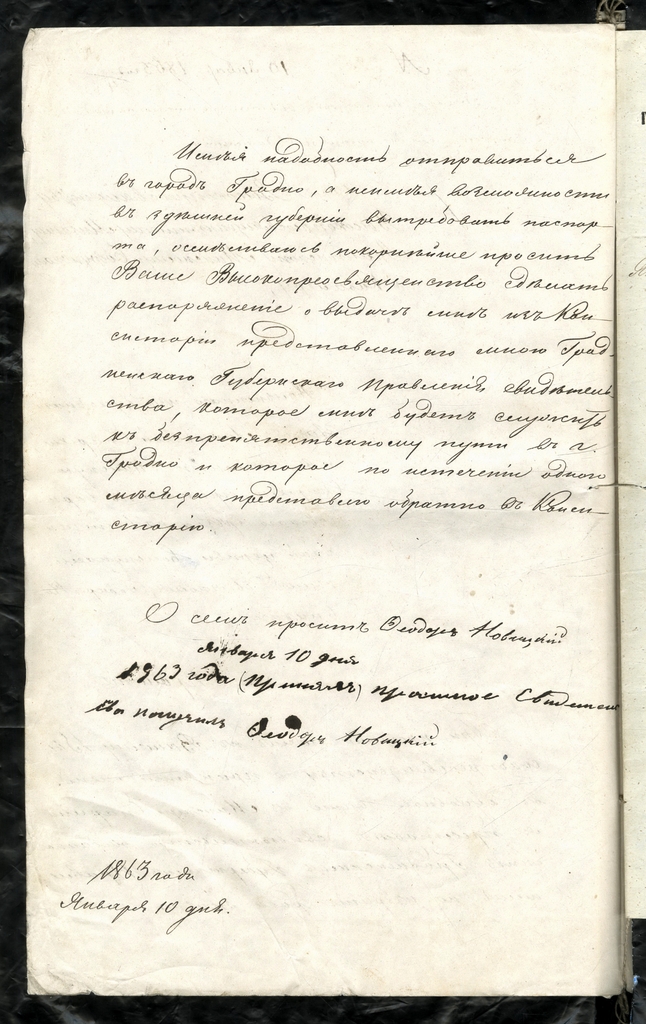 Имѣя надобность отправиться
въ городъ Гродно, а неимѣя возможности
въ здѣшней губерніи вытребовать паспор-
та, осмѣливаюсь покорнѣйше просить
Ваше Высокопреосвященство сдѣлать
распоряженіе о выдачѣ мнѣ изъ Кон-
систоріи представленнаго мною Грод-
ненскаго Губернскаго Правленія свидѣтель-
ства, которое мнѣ будетъ служить
къ безпрепятственному пути въ г.
Гродно и которое по истеченіи одного
мѣсяца представлю обратно въ Конси-
сторію.
О семъ проситъ Ѳеодоръ Новицкій
Января 10 дня
1863 года прошеніе Свидетель
ства получилъ Ѳеодоръ Новицкій
1863 года
Января 10 дня.